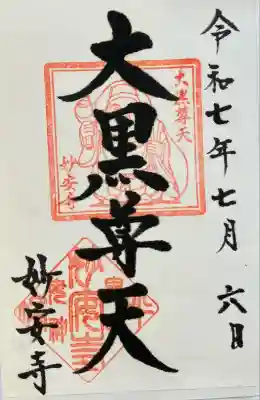 令和七年七月六日
大黒尊天
大黒尊天
妙安寺
妙安寺